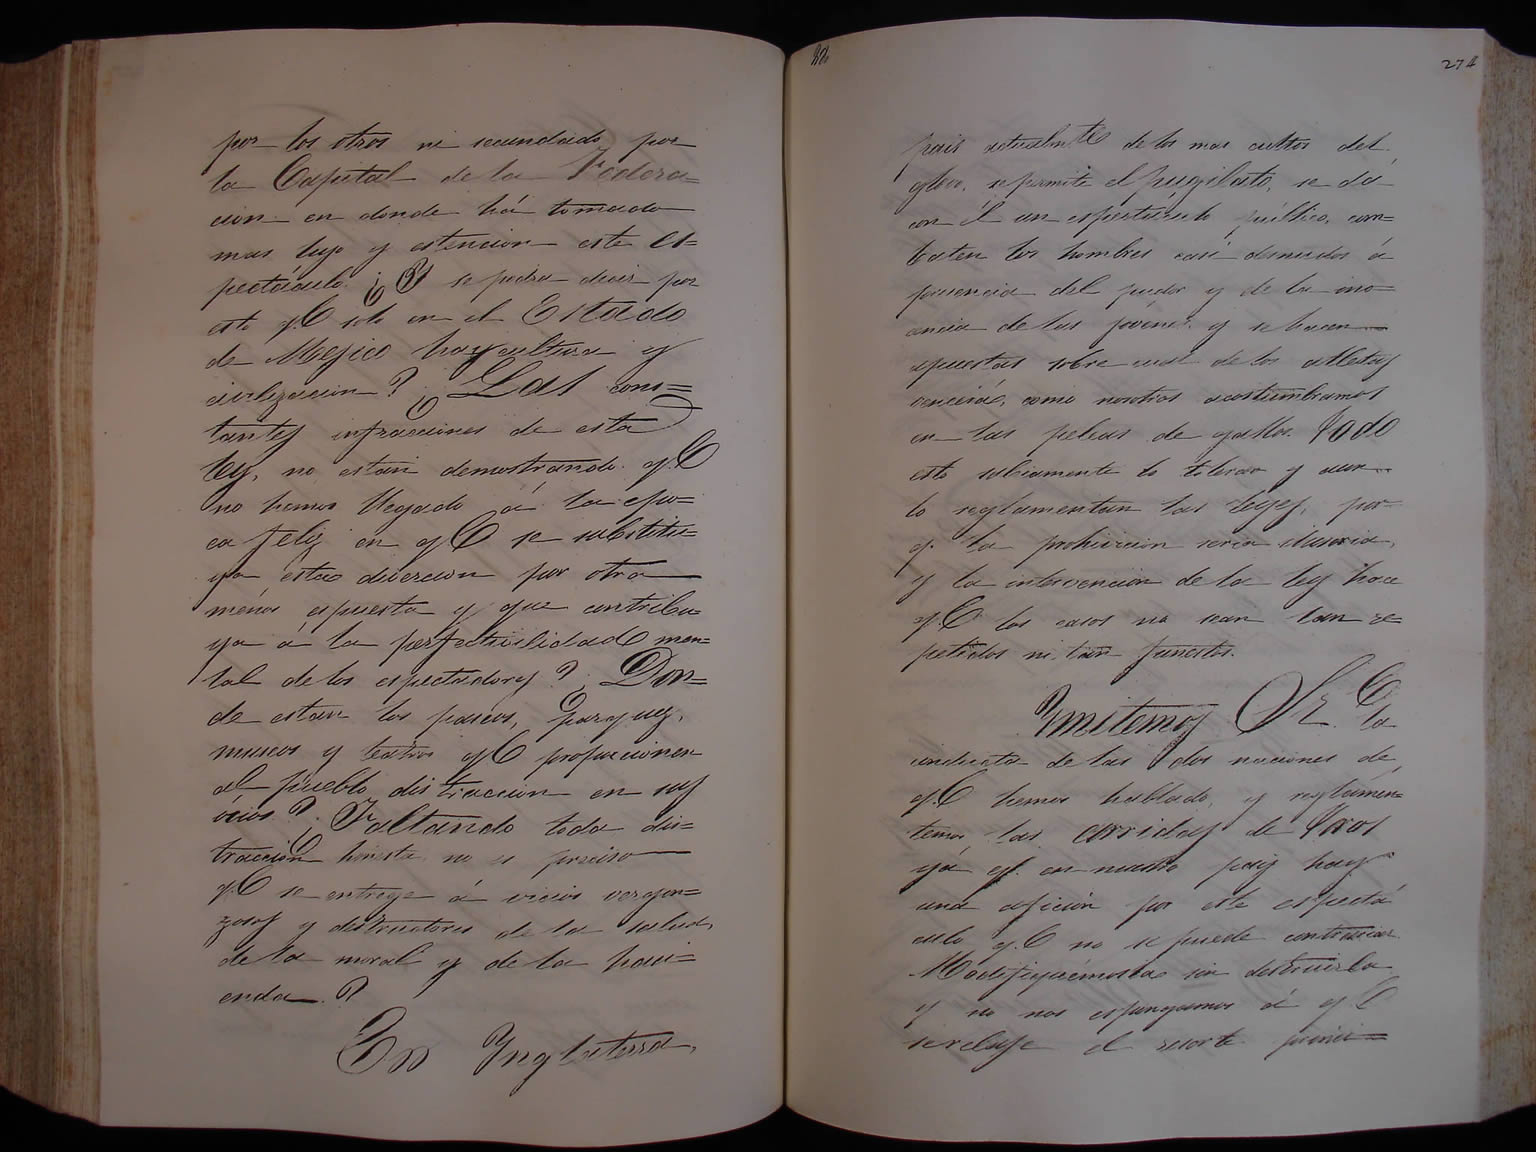 por los otros ni secundado por
la Capital de la Federa=
cion en donde há tomado
mas lujo y estencion este es=
pectáculo. ¿Y se podra decir por
esto qe solo en el Estado
de Mejico hay cultura y
civilizacion? ¿Las cons=
tantes infracciones de esta
ley, no estan demostrando qe
no hemos llegado á la épo=
ca feliz en qe se substitu=
ya esta diversion por otra
ménos espuesta y que contribu
ya á la perfectibilidad men=
tal de los espectadores? ¿Don=
de estan los paseos, parques,
museos y teatros qe proporcionen
al pueblo distraccion en sus
ócios? ¿Faltando toda dis=
traccion honesta no es preciso
qe se entregue á vicios vergon=
zosos y destructores de la salud,
de la moral y de la haci=
enda?
En Inglaterra,
274
pais actualmte de los mas cultos del
globo, se permite el pugilato, se dá
con él un espectáculo público, com=
baten los hombres casi desnudos á
presencia del pudor y de la ino=
cencia de las jóvenes y se hacen
apuestas sobre cual de los atletas
vencerá, como nosotros acostumbramos
en las peleas de gallos. Todo
esto sabiamente lo toleran y aun
lo reglamentan las leyes, por=
q. la prohivicion seria ilusoria,
y la intervencion de la ley hace
qe los casos no sean tan re=
petidos ni tan funestos.
Imitemos Sr. la
conducta de las dos naciones de
qe hemos hablado, y reglamen=
temos las corridas de Toros
yá q. en nuestro pais hay
una aficion por este espectá
culo qe no se puede contrariar.
Modifiquémosla sin destruirla
y no nos espongamos á qe
se relaje el resorte princi=